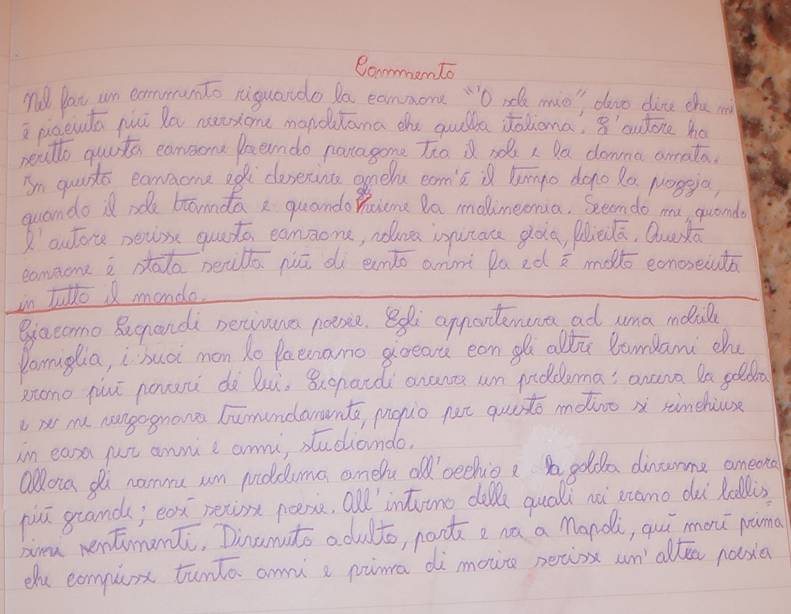 Commento
Nel far un commento riguardo la canzone "'O sole mio", devo dire che mi
è piaciuta più la versione napoletana che quella italiana. L'autore ha
scritto questa canzone facendo paragone tra il sole e la donna amata.
In questa canzone egli descrive anche com'è il tempo dopo la pioggia,
quando il sole tramonta e quando viene la malinconia. Secondo me, quando
l'autore scrisse questa canzone, voleva ispirare gioia, felicità. Questa
canzone è stata scritta più di cento anni fa ed è molto conosciuta
in tutto il mondo.
Giacomo Leopardi scriveva poesie. Egli apparteneva ad una nobile
famiglia, i suoi non lo facevano giocare con gli altri bambani che
erano più poveri di lui. Leopardi aveva un problema: aveva la gobba
e se ne vergognava tremendamente, propio per questo motivo si rinchiuse
in casa per anni e anni, studiando.
Allora gli venne un problema anche all'occhio e la gobba divenne ancora
più grande; così scrisse poesie. All'interno delle quali vi erano dei bellis
simi sentimenti. Divenuto adulto, parte e va a Napoli, qui morì prima
che compiesse trenta anni e prima di morire scrisse un'altra poesia